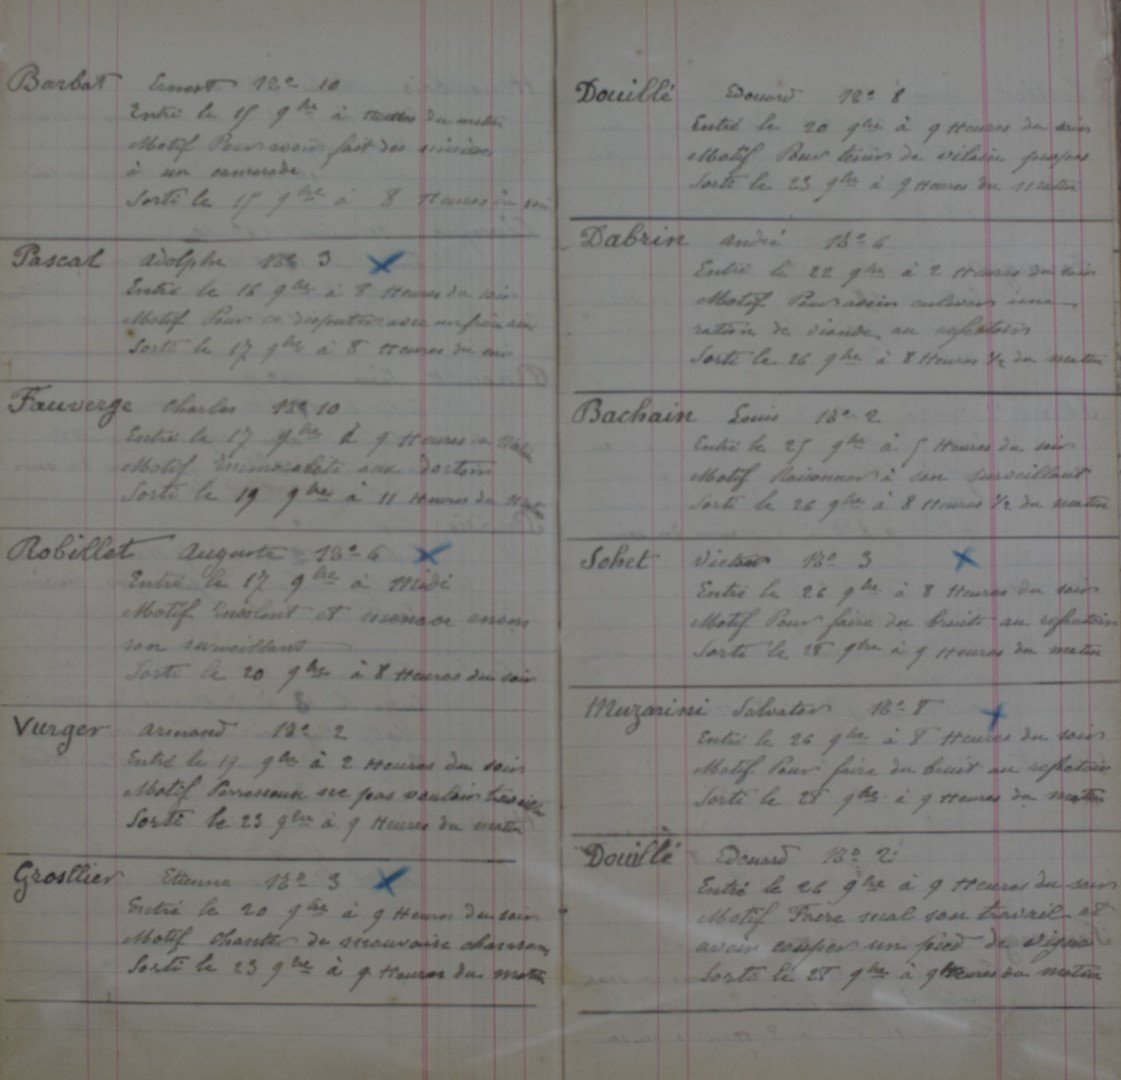 Barbat Ernest 13e 10
Entré le 15 9bre à heures du matin
Motif Pour avoir fait des misères
à un camarade
Sorti le 15 9bre à 8 Heures du soir
Pascal Adolphe 13e 3
Entré le 16 9bre à 8 Heures du soir
Motif Pour ce disputer avec un
Sorti le 17 9bre à 8 Heures du soir
Fauverge Charles 13e 10
Entré le 17 9bre à 9 Heures Matin
Motif Immoralité au dortoir
Sorti le 19 9bre à 11 Heures du Matin
Robillet Auguste 13e 6
Entré le 17 9bre à Midi
Motif Insolent et menace envers
son surveillant
Sorti le 20 9bre à 8 Heures du soir
Vurger Armand 13e 2
Entré le 19 9bre à 2 Heures du soir
Motif Paresseux ne pas vouloir travailler
Sorti le 23 9bre à 9 Heures du matin
Grosllier Etienne 13e 3
Entré le 20 9bre à 9 Heures du soir
Motif Chanter de mauvaise chansons
Sorti le 23 9bre à 9 Heures du matin
Douillé Edouard 13e 8
Entré le 20 9bre à 9 Heures du soir
Motif Pour tenir de vilain propos
Sorti le 23 9bre à 9 Heures du matin
Dabrin André 13e 6
Entré le 22 9bre à 2 Heures du soir
Motif Pour avoir enlever une
ration de viande au refectoire
Sorti le 26 9bre à 8 Heures 1/2 du matin
Bachain Louis 13e 2
Entré le 25 9bre à 5 Heures du soir
Motif Raisonner à son surveillant
Sorti le 26 9bre à 8 Heures 1/2 du matin
Sohet Victor 13e 3
Entré le 26 9bre à 8 Heures du soir
Motif Pour faire du bruit au refectoir
Sorti le 28 9bre à 9 Heures du matin
Muzarini Salvator 13e 8
Entré le 26 9bre à 8 Heures du soir
Motif Pour faire du bruit au refectoir
Sorti le 28 9bre à 9 Heures du matin
Douillé Edouard 13e 2
Entré le 26 9bre à 9 Heures du soir
Motif Faire mal son travail et
avoir couper un pied de vigne
Sorti le 28 9bre à 9 Heures du matin